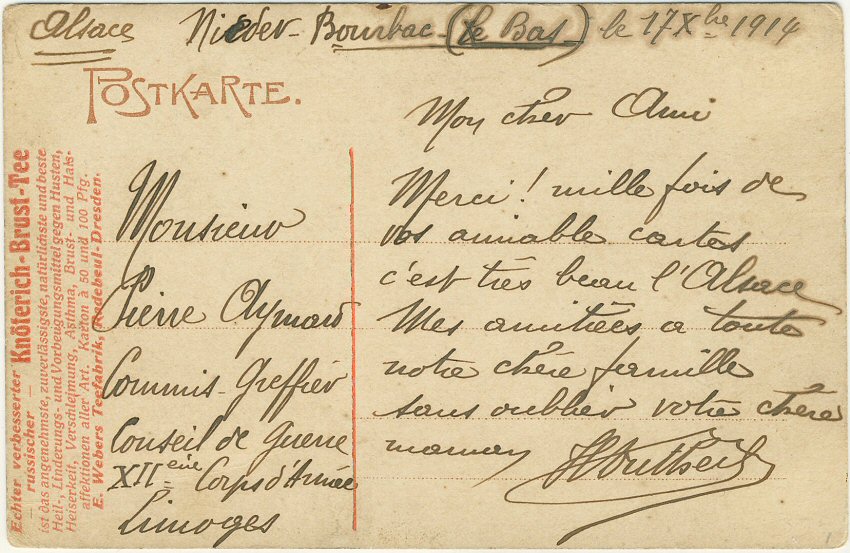 Alsace Nieder-Bourbac (le Bas) le 17 Xbre 1914
POSTKARTE.
Echter verbesserter Knöterich-Brust-Tee
— russischer —
ist das angenehmste, zuverlässigste, natürlichste und beste
Heil-, Linderungs- und Vorbeugungsmittel gegen Husten,
Heiserkeit, Verschleimung, Asthma, Brust- und Hals-
affektionen aller Art. Karton à 50 und 100 Pfg.
E. Webers Teefabrik, Radebeul-Dresden.
Monsieur
Pierre Aymard
Commis-Greffier
Conseil de Guerre
XIIeme Corps d'Armée
Limoges
Mon cher Ami
Merci! mille fois de
vos aimable cartes
c'est très beau l'Alsace
Mes amitiées a toute
notre chère famille
sans oublier votre chère
maman